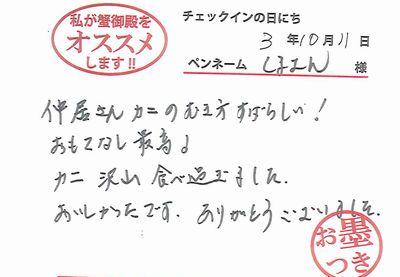 私が蟹御殿を
オススメ
します!!
チェックインの日にち
3年10月11日
ペンネーム しまエん 様
仲居さんカニのむき方すばらしい!
おもてなし最高♪
カニ 沢山 食べ過ぎました.
おいしかったです. ありがとうございました.
お墨
つき